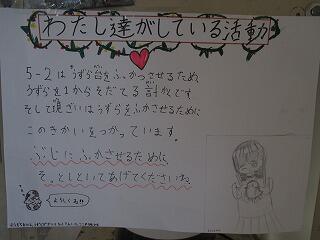 わたし達がしている活動
5-2は"うずら台をふっかつさせるため、
うずらを1からそだてる計かくです。
そして現ざいはうずらをふかさせるために
このきかいをつかっています。
ぶじにふかさせるために
そっとしといてあげてくださいね。
よろしくね!!